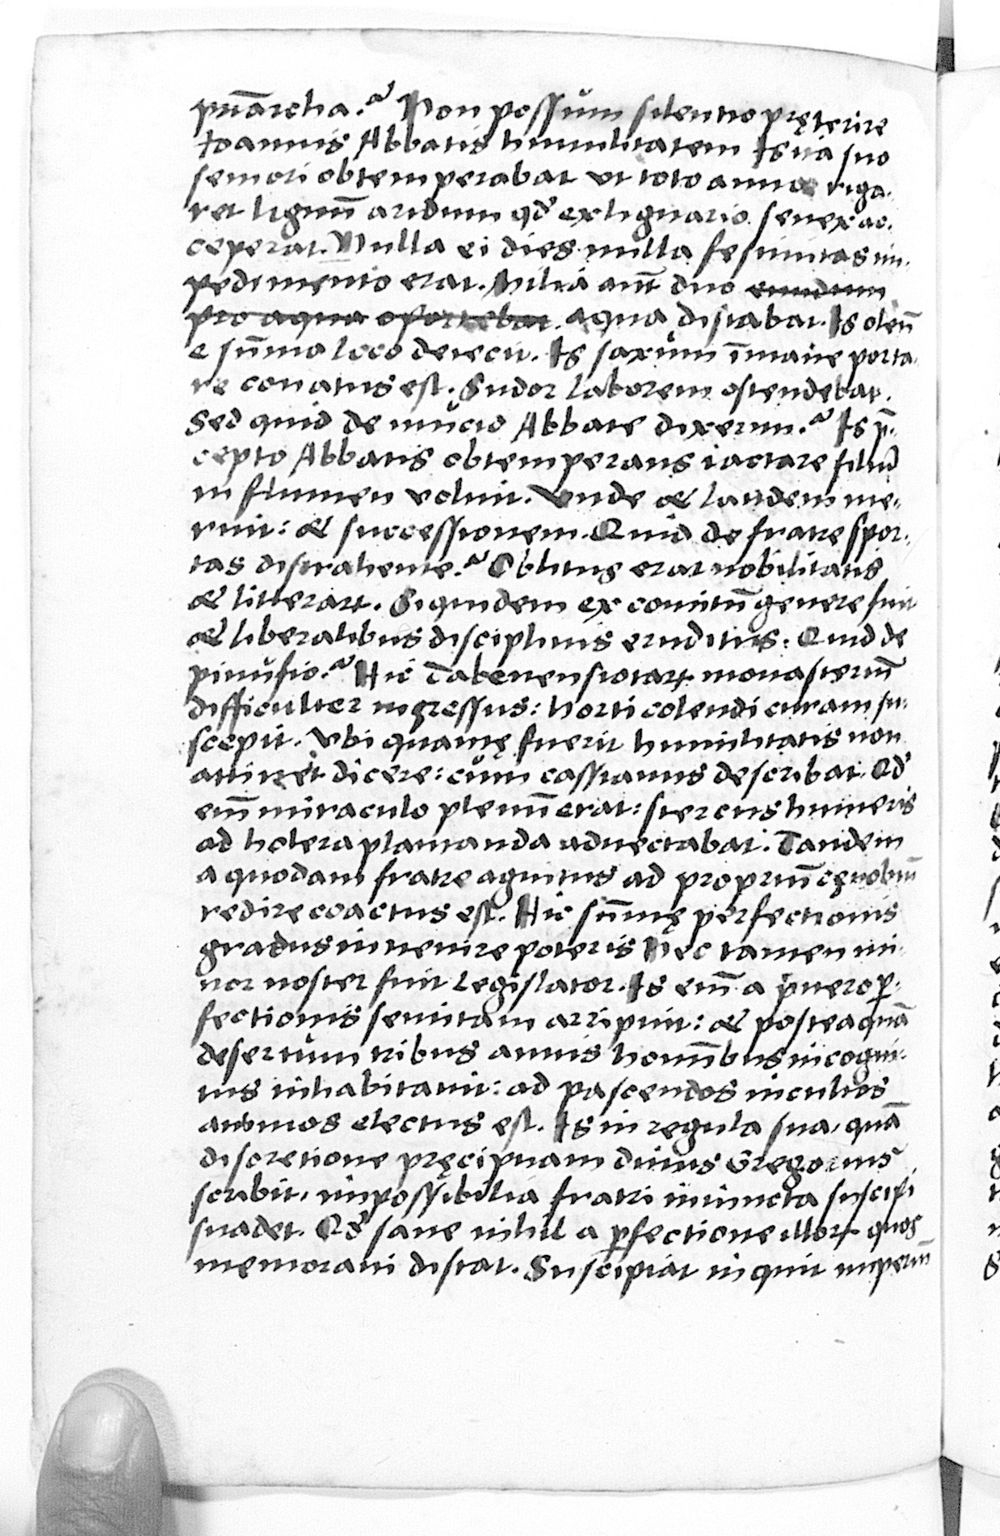 pnãrcha? Non possum silentio pręterire
Ioannis Abbatis humilitatem Is ita suo
seniori obtemperabat ut toto anno riga-
ret lignũ aridum qđ ex lignario senex ac-
ceperat. Nulla ei dies nulla festiuitas im-
pedimento erat. Milia aũt duo
pro aqua oportebat aqua distabat. Is oleũ
e sũma loco deiecit. Is saxum ĩmane porta-
re conatus est. Sudor laborem ostendebat.
Sed quid de mucio Abbate dixerim? Is p̃-
cepto Abbatis obtemperans iactare filiũ
in flumen uoluit. Vnde & laudem me-
ruit: & successionem. Quid de fratre spor-
tas distrahente? Oblitus erat nobilitatis
& litterarꝝ. Siquidem ex comitũ genere fuit
& liberalibus disciplinis eruditus. Quid de
pinufio? Hic Tabenensiotarꝝ monasteriũ
difficulter ingressus: horti colendi curam su-
scepit. Vbi quantę fuerit humilitatis non
attinet dicere: cum cassianus describat. Qđ
em̃ miraculo plenũ erat: stercus humeris
ad holera plantanda aduectabat. Tandem
a quodam fratre agnitus ad propriũ cęnobiũ
redire coactus est. Hic sũmę perfectionis
gradus inuenire poteris Nec tamen mi-
nor noster fuit legislator. Is em̃ a puero ꝑ-
fectionis semitam arripuit: & posteaquã
desertum tribus annis hominĩbus incogni-
tus inhabitauit: ad pascendos incultos
animos electus est. Is in regula sua, quã
discretione pręcipuam diuus Gregorius
scribit, impossibilia fratri iniuncta suscipi
suadet. Qđ sane nihil a ꝑfectione illorꝝ quos
memoraui distat. Suscipiat inquit imperiũ